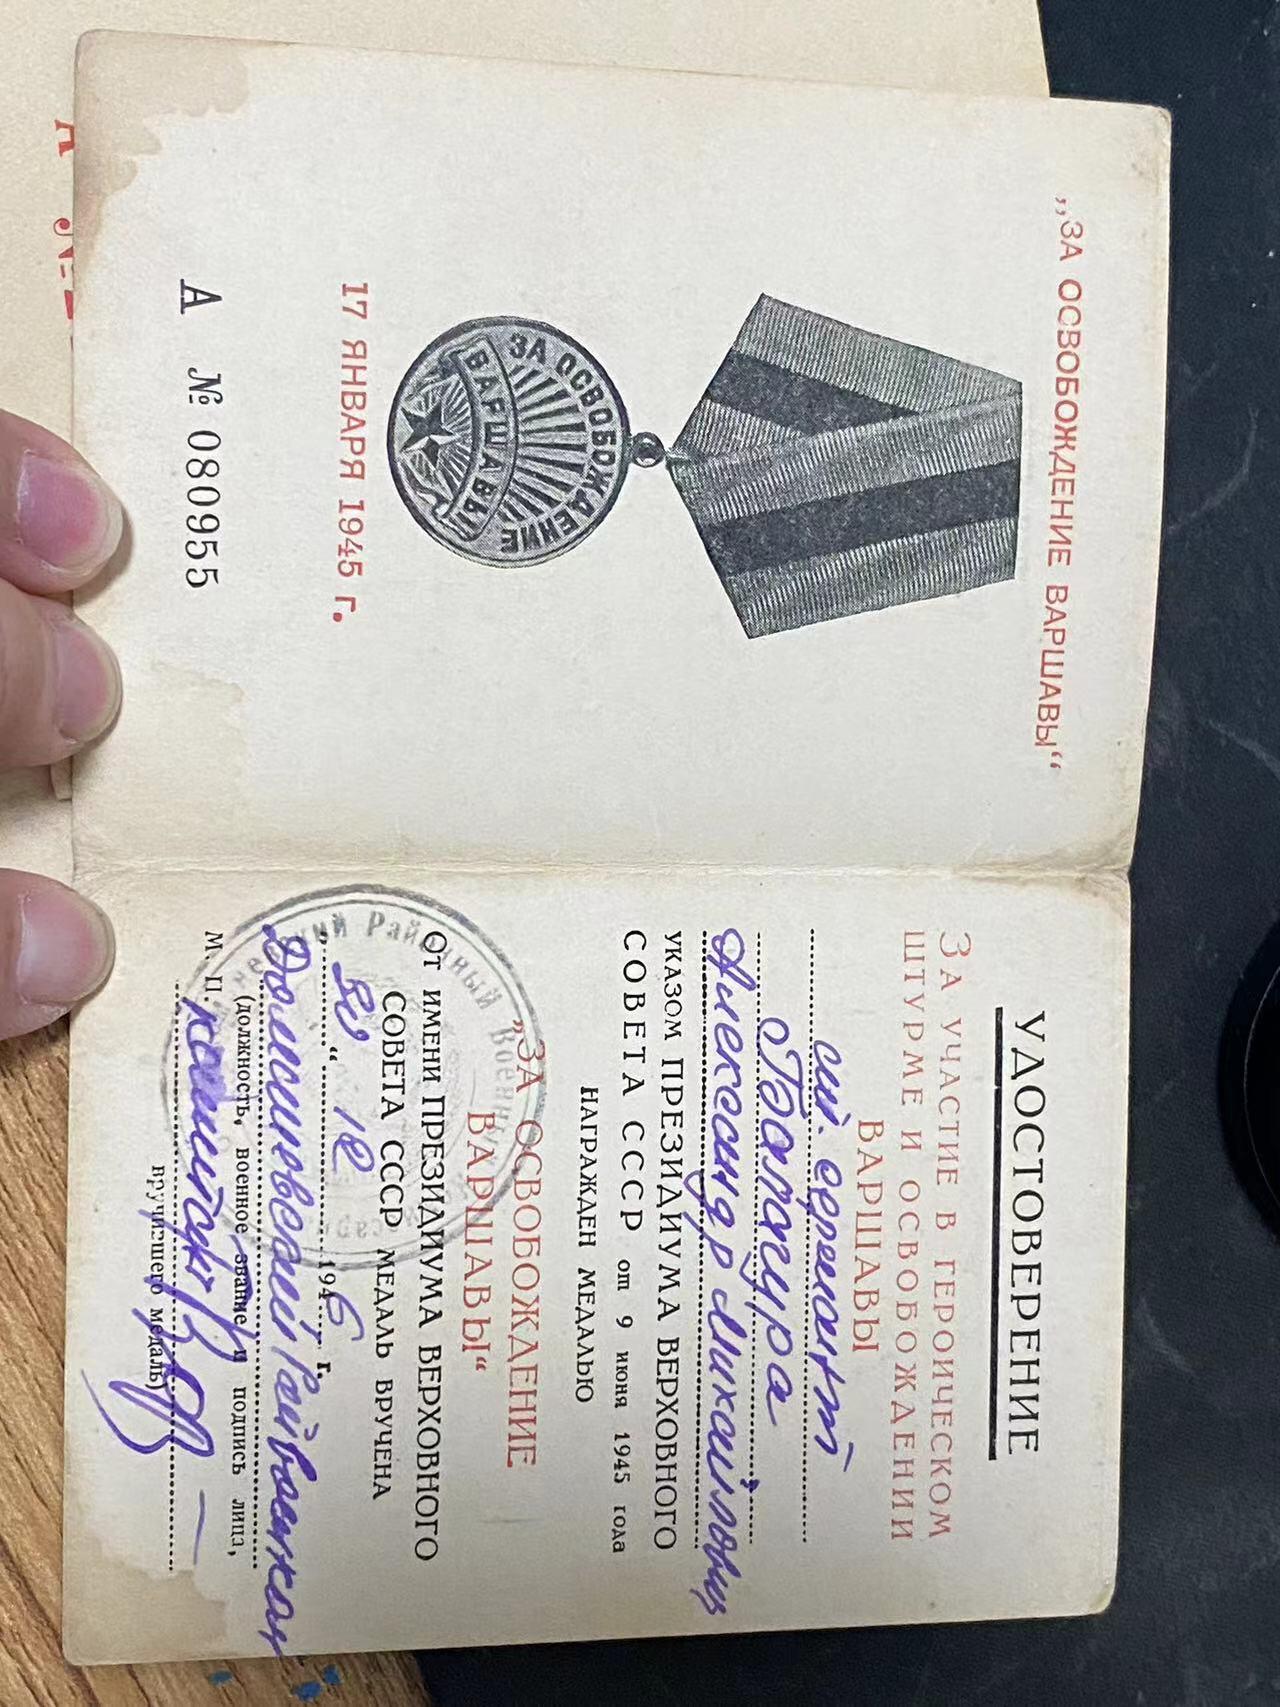 „ЗА ОСВОБОЖДЕНИЕ ВАРШАВЫ“
ЗА ОСВОБОЖДЕНИЕ
ВАРШАВЫ
17 ЯНВАРЯ 1945 г.
А № 080955
УДОСТОВЕРЕНИЕ
ЗА УЧАСТИЕ В ГЕРОИЧЕСКОМ
ШТУРМЕ И ОСВОБОЖДЕНИИ
ВАРШАВЫ
сержант
Балагура
Александр Михайлович
УКАЗОМ ПРЕЗИДИУМА ВЕРХОВНОГО
СОВЕТА СССР от 9 июня 1945 года
НАГРАЖДЕН МЕДАЛЬЮ
„ЗА ОСВОБОЖДЕНИЕ
ВАРШАВЫ“
ОТ ИМЕНИ ПРЕЗИДИУМА ВЕРХОВНОГО
СОВЕТА СССР МЕДАЛЬ ВРУЧЕНА
„ 30 “ 12 1946 г.
Райвоенком
(должность, военное звание и подпись лица,
М. П. капитан
вручившего медаль)
Районный Военный